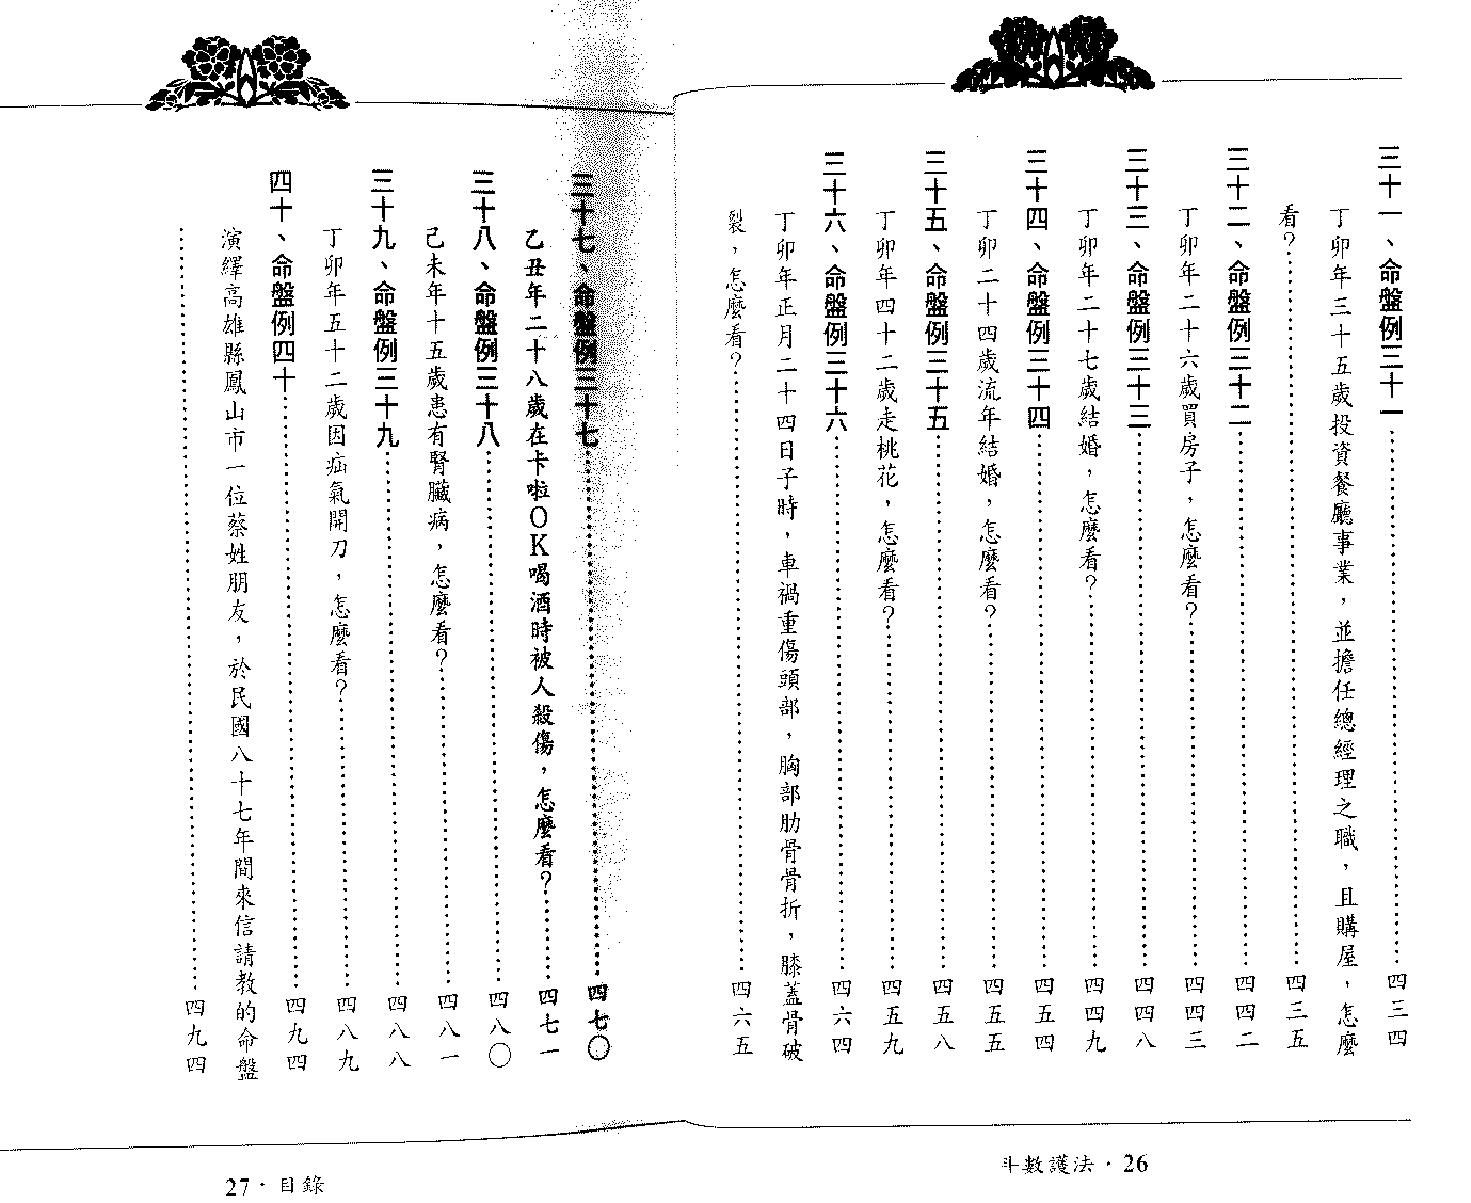 三十一、命盤例三十一……四三四
丁卯年三十五歲投資餐廳事業，並擔任總經理之職，且購屋，怎麼
看？……四三五
三十二、命盤例三十二……四四二
丁卯年二十六歲買房子，怎麼看？……四四三
三十三、命盤例三十三……四四八
丁卯年二十七歲結婚，怎麼看？……四四九
三十四、命盤例三十四……四五四
丁卯二十四歲流年結婚，怎麼看？……四五五
三十五、命盤例三十五……四五八
丁卯年四十二歲走桃花，怎麼看？……四五九
三十六、命盤例三十六……四六四
丁卯年正月二十四日子時，車禍重傷頭部，胸部肋骨骨折，膝蓋骨破
裂，怎麼看？……四六五
斗數護法・26
三十七、命盤例三十七……四七〇
乙丑年二十八歲在卡啦OK喝酒時被人殺傷，怎麼看？……四七一
三十八、命盤例三十八……四八〇
己未年十五歲患有腎臟病，怎麼看？……四八一
三十九、命盤例三十九……四八八
丁卯年五十二歲因疝氣開刀，怎麼看？……四八九
四十、命盤例四十……四九四
演繹高雄縣鳳山市一位蔡姓朋友，於民國八十七年間來信請教的命盤
……四九四
27・目錄